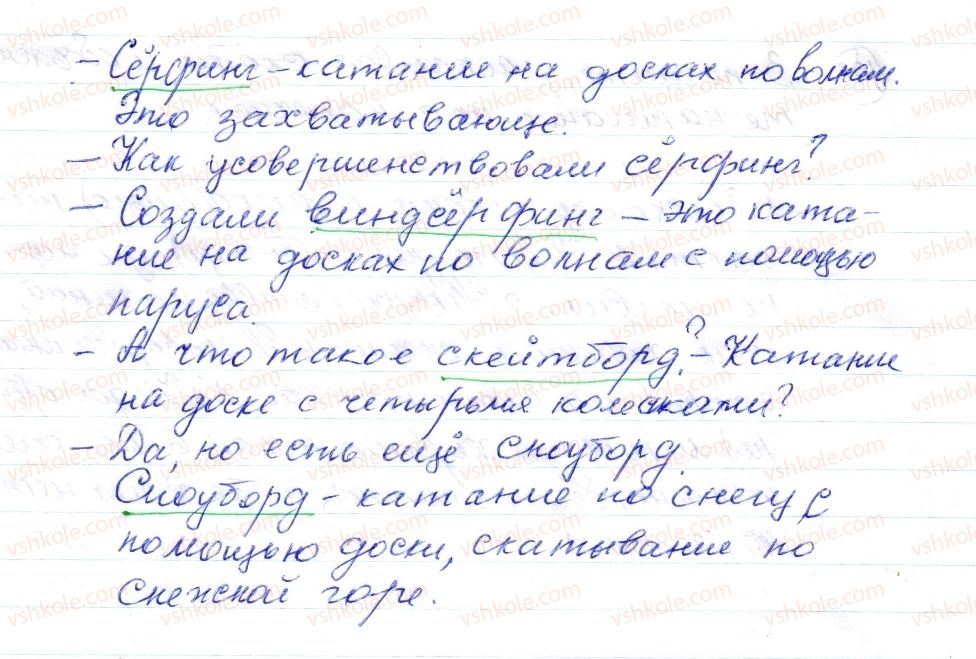 - Сёрфинг - катание на досках по волнам.
Это захватывающе.
- Как усовершенствовали сёрфинг?
- Создали виндсёрфинг - это ката-
ние на досках по волнам с помощью
паруса.
- А что такое скейтборд? - Катание
на доске с четырьмя колёсками?
- Да, но есть ещё сноуборд.
Сноуборд - катание по снегу с
помощью доски, скатывание по
снежной горе.